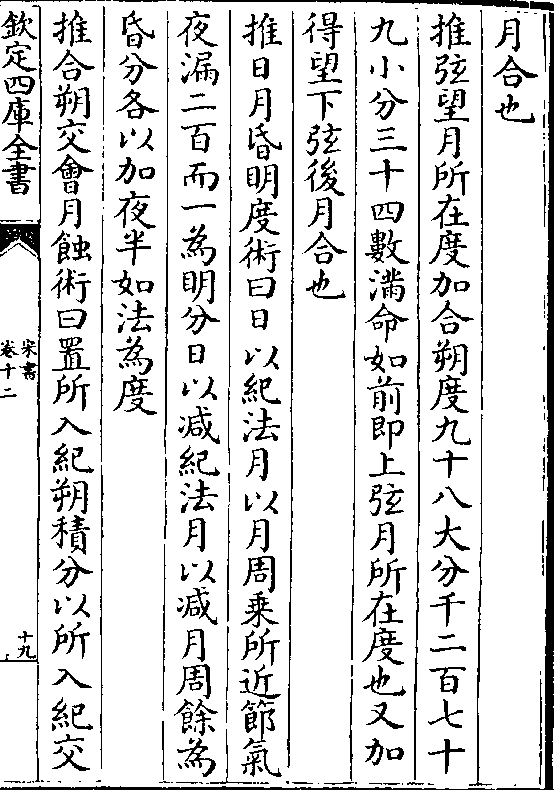 月合也
推弦望月所在度加合朔度九十八大分千二百七十
九小分三十四數滿命如前即上弦月所在度也又加
得望下弦後月合也
推日月昏明度術曰日以紀法月以月周乗所近節氣
夜漏二百而一為明分日以減紀法月以減月周餘為
昏分各以加夜半如法為度
推合朔交會月蝕術曰置所入紀朔積分以所入紀交
欽定四庫全書
宋書
卷十二
十九